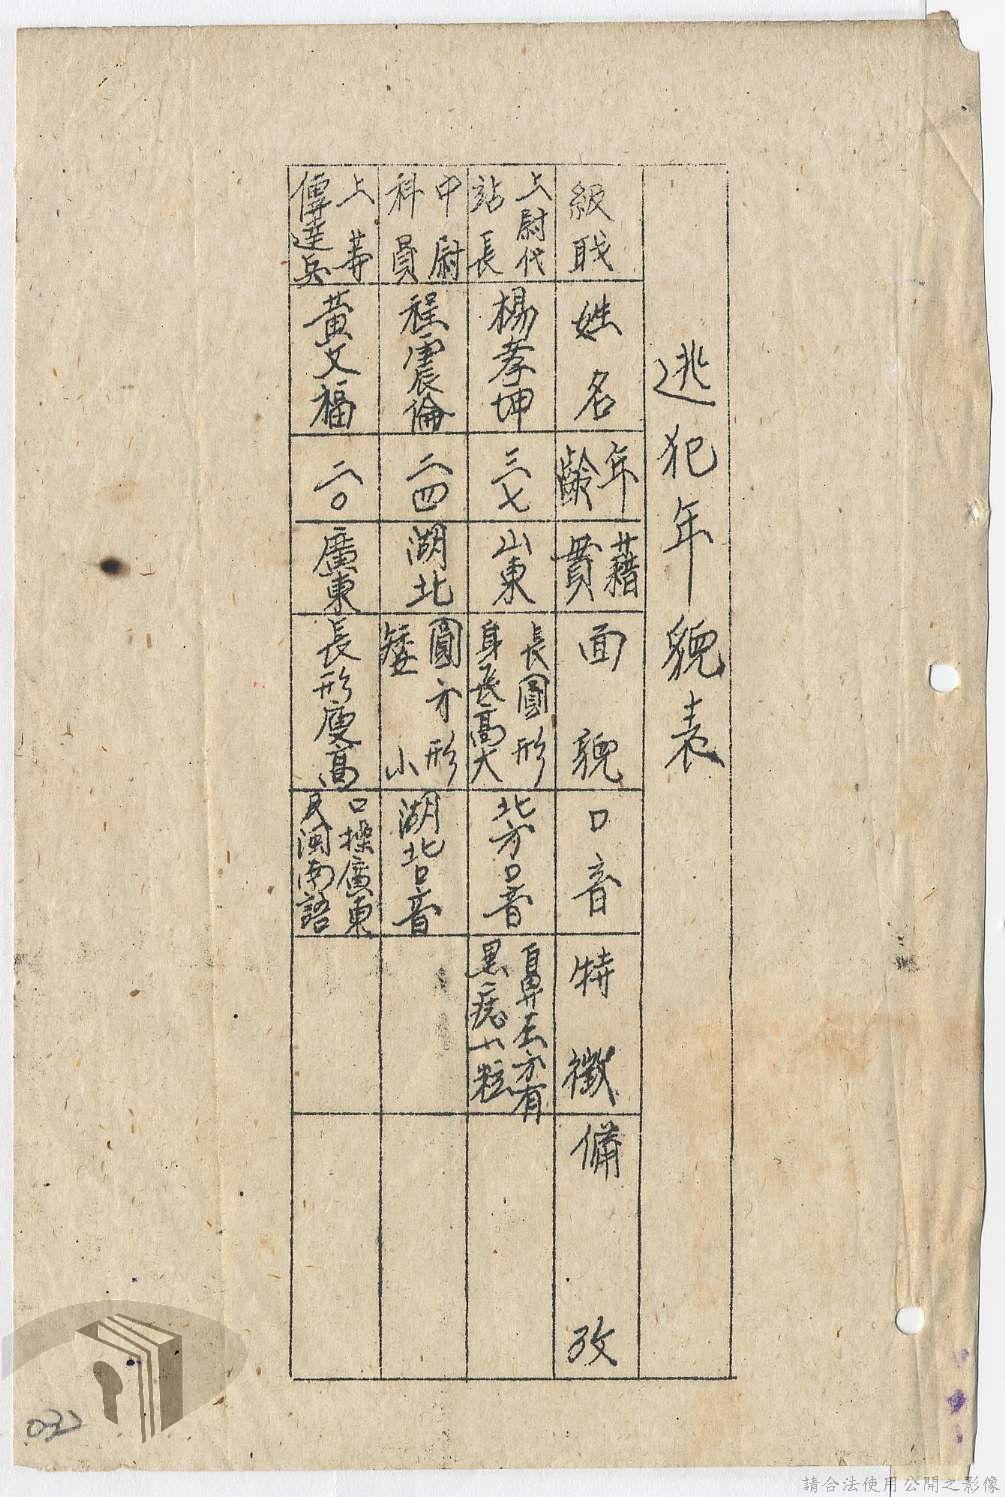 逃犯年貌表
級職
姓名
年齡
藉貫
面貌
口音
特徵
備攷
上尉代
站長
楊孝坤
三七
山東
長圓形
身長高大
北方口音
鼻左方有
黑痣一粒
中尉
科員
程震倫
二四
湖北
圓方形
矮小
湖北口音
上等
傳達兵
黃文福
二〇
廣東
長形瘦高
口操廣東
及閩南語
032
請合法使用公開之影像